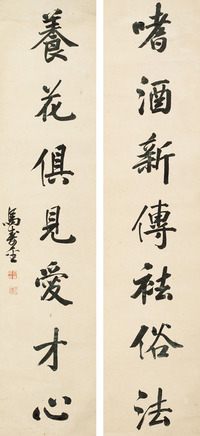 嗜酒新傳祛俗法
養花俱見愛才心
馬壽華